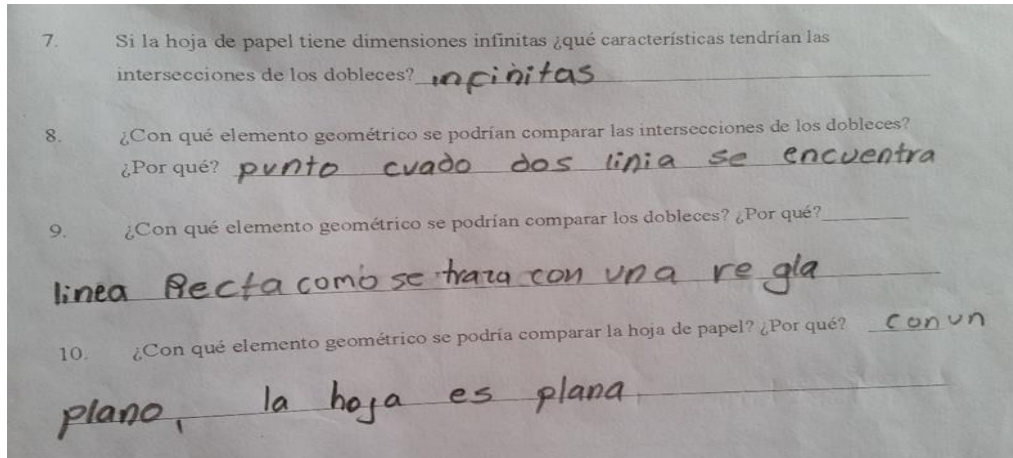 7. Si la hoja de papel tiene dimensiones infinitas ¿qué características tendrían las
intersecciones de los dobleces? infinitas
8. ¿Con qué elemento geométrico se podrían comparar las intersecciones de los dobleces?
¿Por qué? punto cuado dos linia se encuentra
9. ¿Con qué elemento geométrico se podrían comparar los dobleces? ¿Por qué?
linea Recta como se traza con una regla
10. ¿Con qué elemento geométrico se podría comparar la hoja de papel? ¿Por qué? con un
plano, la hoja es plana